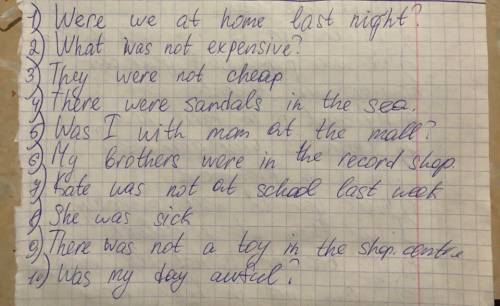 1) Were we at home last night?
2) What was not expensive?
3) They were not cheap
4) There were sandals in the sea.
5) Was I with mom at the mall?
6) My brothers were in the record shop.
7) Kate was not at school last week
8) She was sick
9) There was not a toy in the shop. centre
10) Was my day awful?